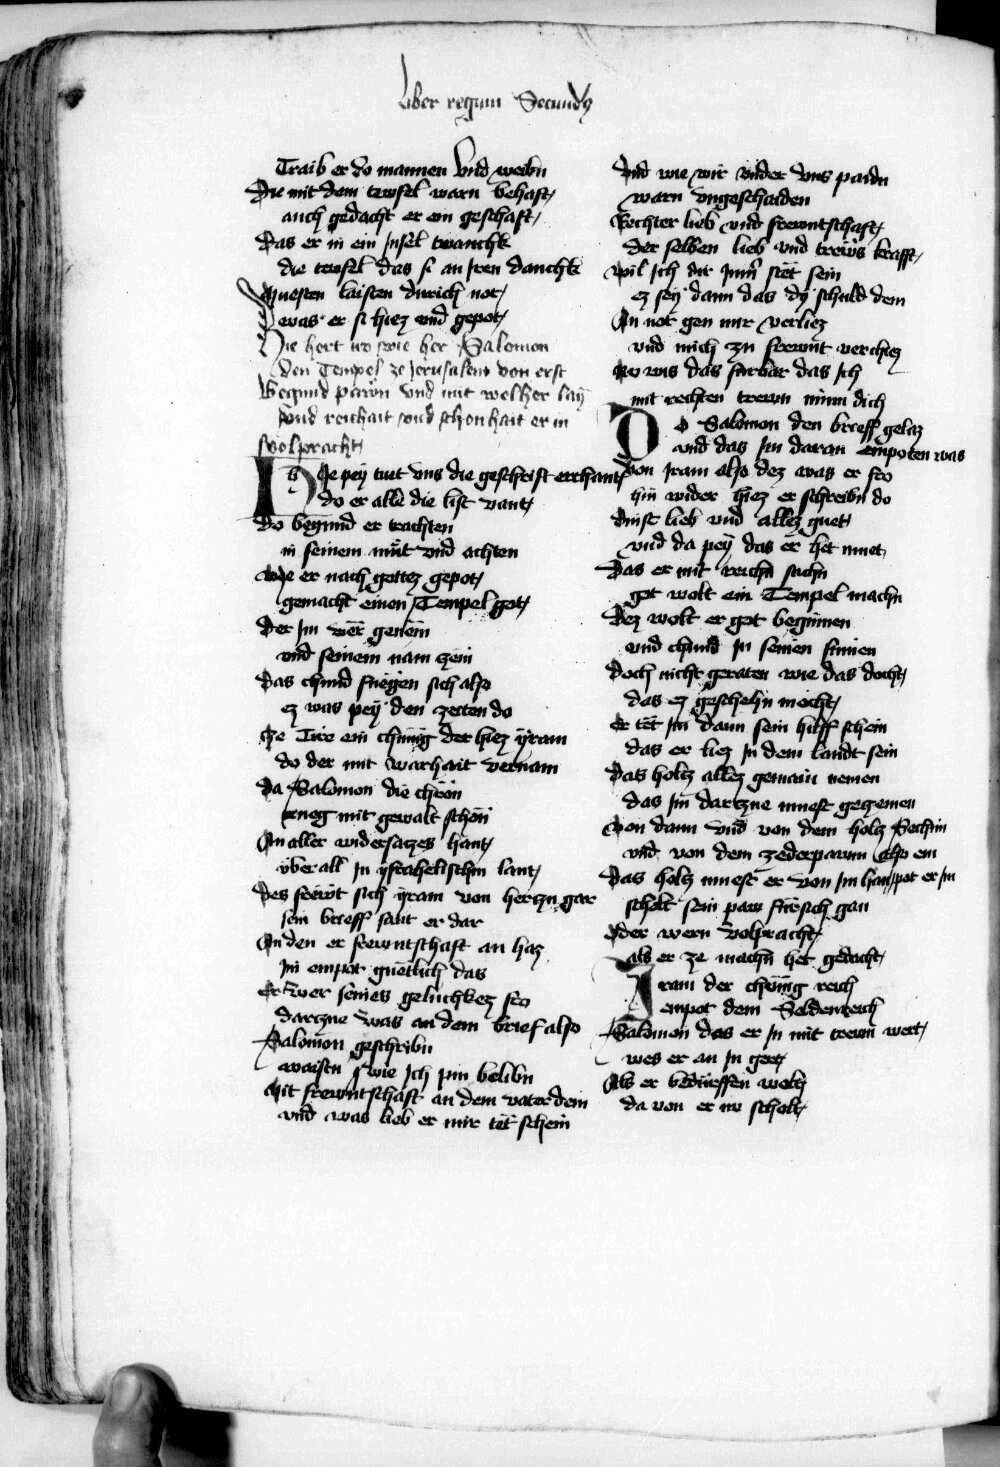 Liber regum Secundus
Traib er do mannen vnd weibn
Die mit dem tewfel warn behaft
auch gedacht er ein geschaft
Das er in ein Insel twanchk
die tewfel das si an Iren danchk
Muesten laisten durich not
swas er si hiez vnd gepot
Hie hert wo wie her Salomon
den Tempel ze Jerusalem von erst
Begund pawn vnd mit welher lay
vnd reichait vnd schonhait er in
volpracht
Hie pey tuet vns die geschrift erchant
do er alle die list vant
Do begund er trachten
in seinem muet vnd achten
Wie er nach gottez gepot
gemacht einen Tempel got
Der Im wer genem
vnd seinem nam zem
Das chund fuegen sich also
ez was pey den zeiten do
Ze Tire ein chunig der hiez yram
do der mit warhait vernam
Da Salomon die chron
trueg mit gewalt schon
An aller widersatzes hant
vber all In ysrahelischm lant
Des frewt sich yram von hertzn gar
sein brieff sant er dar
An den er frewntschaft an haz
Im empot guetlich das
Er wer seines geluchkez fro
dartzue was an dem brief also
Salomon geschribn
waistu swie Ich pin belibn
Mit frewntschaft an dem vater dein
vnd was lieb er mir tet schein
Vnd wie wir vnder vns paidn
warn vngeschaiden
Rechter lieb vnd frewntschaft
der selben lieb vnd trews krafft
Wil Ich dir Immer stet sein
ez sey dann das dy schuld dein
An not gen mir verliez
vnd mich zu frewnt verchiez
Nu wis das furbar das Ich
mit rechten trewn minn dich
Do Salomon den brieff gelaz
vnd das Im daran empoten was
Von Iram also dez was er fro
hin wider hiez er schreibn do
Dinst lieb vnd allez guet
vnd da pey das er het muet
Das er mit reichn sachn
got wolt ein Tempel machn
Dez wolt er got beginnen
vnd chund In seinen sinnen
Doch nicht geraten wie das docht
das ez geschehn mocht
Er tet Im dann sein hilff schein
das er liez In dem landt sein
Das holtz allez gemain nemen
das Im dartzue muest getzemen
Von dann vnd von dem holtz Sechim
vnd von dem zederpawm also ein
Das holtz muest er von Im han pot er Im
scholt sein paw fursich gan
Oder wern volpracht
als er ze machn het gedacht
Iram der chunig reich
empot dem Seldenreich
Salomon das er In mit trewn wert
wes er an In gert
Als er bedurffen wolt
da von er nw scholt